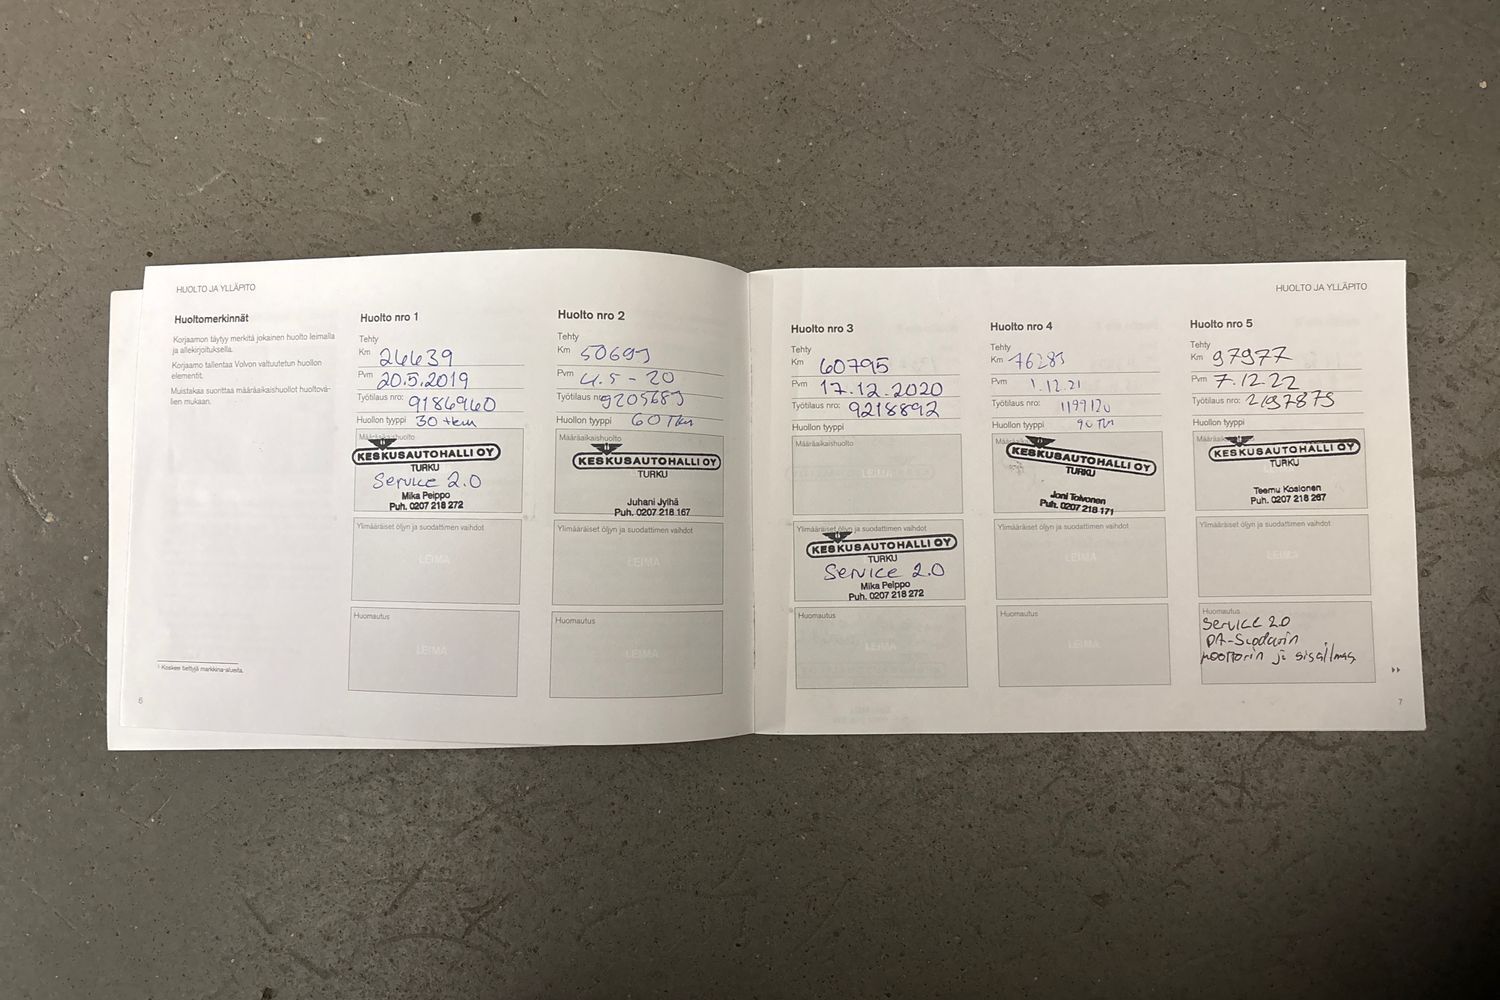 HUOLTO JA YLLÄPITO
Huoltomerkinnät
Korjaamon täytyy merkitä jokainen huolto leimalla
ja allekirjoituksella.
Korjaamo tallentaa Volvon valtuutetun huollon
elementit.
Muistakaa suorittaa määräaikaishuollot huoltovä-
lien mukaan.
¹ Koskee tiettyjä markkina-alueita.
6
Huolto nro 1
Tehty
Km 24439
Pvm 20.5.2019
Työtilaus nro: 9186940
Huollon tyyppi 30 tkm
Määräaikaishuolto
KESKUSAUTOHALLI OY
TURKU
Service 2.0
Mika Peippo
Puh. 0207 218 272
Ylimääräiset öljyn ja suodattimen vaihdot
LEIMA
Huomautus
LEIMA
Huolto nro 2
Tehty
Km 50693
Pvm 4.5-20
Työtilaus nro: 9205683
Huollon tyyppi 60 Tkm
Määräaikaishuolto
KESKUSAUTOHALLI OY
TURKU
Juhani Jylhä
Puh. 0207 218 167
Ylimääräiset öljyn ja suodattimen vaihdot
LEIMA
Huomautus
LEIMA
HUOLTO JA YLLÄPITO
Huolto nro 3
Tehty
Km 60795
Pvm 17.12.2020
Työtilaus nro: 9218892
Huollon tyyppi
Määräaikaishuolto
LEIMA
Ylimääräiset öljyn ja suodattimen vaihdot
KESKUSAUTOHALLI OY
TURKU
Service 2.0
Mika Peippo
Puh. 0207 218 272
Huomautus
LEIMA
Huolto nro 4
Tehty
Km 76283
Pvm 1.12.21
Työtilaus nro:
Huollon tyyppi 90 Tkm
KESKUSAUTOHALLI OY
TURKU
Joni Toivonen
Puh. 0207 218 171
Ylimääräiset öljyn ja suodattimen vaihdot
LEIMA
Huomautus
LEIMA
Huolto nro 5
Tehty
Km 97977
Pvm 7.12.22
Työtilaus nro: 2197875
Huollon tyyppi
KESKUSAUTOHALLI OY
TURKU
Teemu Kosionen
Puh. 0207 218 267
Ylimääräiset öljyn ja suodattimen vaihdot
LEIMA
Huomautus
Service 2.0
PA-Suodatin
moottorin ja sisäilmas
7